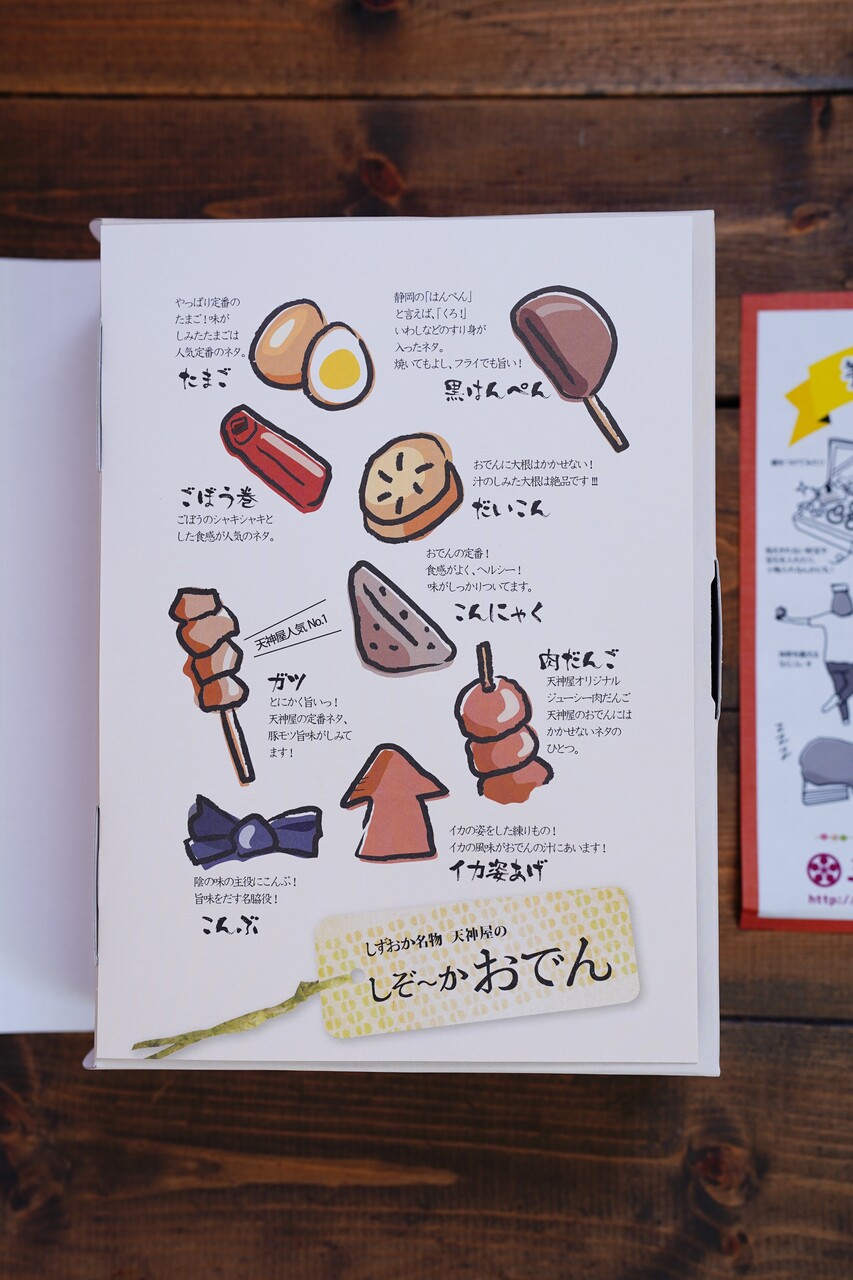 やっぱり定番の
たまご！味が
しみたたまごは
人気定番のネタ。
たまご
静岡の「はんぺん」
と言えば、「くろ！」
いわしなどのすり身が
入ったネタ。
焼いてもよし、フライでも旨い！
黒はんぺん
ごぼう巻
ごぼうのシャキシャキと
した食感が人気のネタ。
おでんに大根はかかせない！
汁のしみた大根は絶品です!!!
だいこん
おでんの定番！
食感がよく、ヘルシー！
味がしっかりついてます。
こんにゃく
天神屋人気No.1
ガツ
とにかく旨いっ！
天神屋の定番ネタ、
豚モツ旨味がしみて
ます！
肉だんご
天神屋オリジナル
ジューシー肉だんご
天神屋のおでんには
かかせないネタの
ひとつ。
イカの姿をした練りもの！
イカの風味がおでんの汁にあいます！
イカ姿あげ
陰の味の主役にこんぶ！
旨味をだす名脇役！
こんぶ
しずおか名物 天神屋の
しぞ〜かおでん
http://